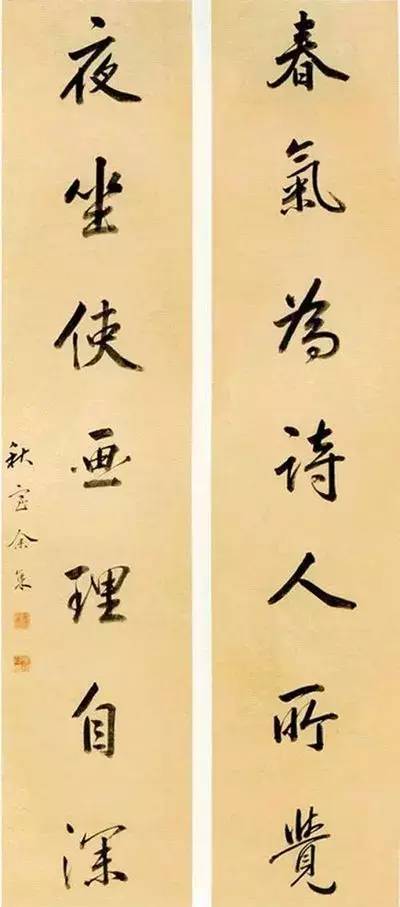 春氣為詩人所覺
夜坐使畫理自深
秋室余集